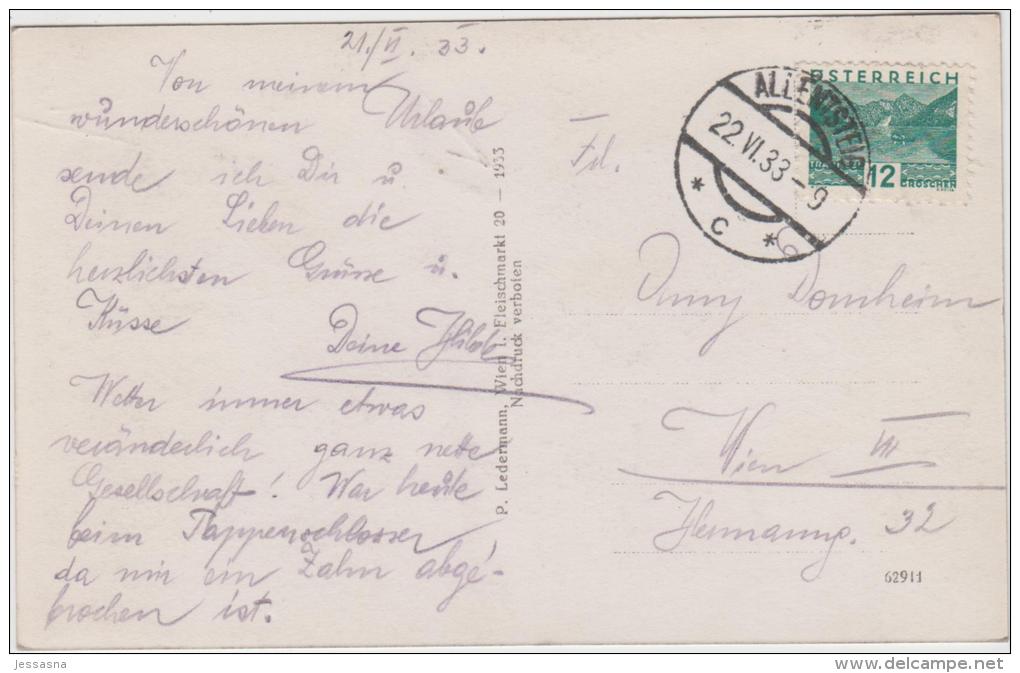 21./VI. 33.
Von meinem
wunderschönen Urlaub
sende ich Dir u.
Deinen Lieben die
herzlichsten Grüsse u.
Küsse
Deine
Wetter immer etwas
veränderlich ganz nette
Gesellschaft! War heute
beim
da mir ein Zahn abge-
brochen ist.
P. Ledermann, Wien I. Fleischmarkt 20 — 1933
Nachdruck verboten
ALLENTSTEIG
22.VI.33-9
* C *
ÖSTERREICH
12 GROSCHEN
Frl.
Anny Domheim
Wien III
Hermanng. 32
62911
jessasna
www.delcampe.net